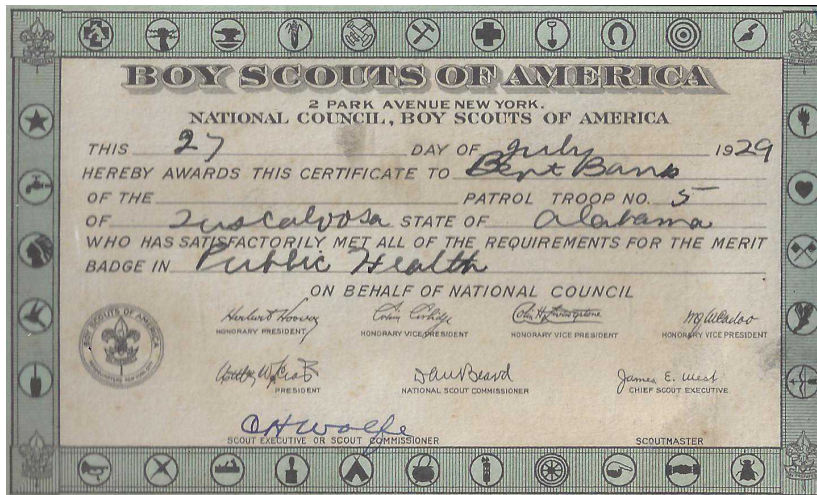 BOY SCOUTS OF AMERICA
2 PARK AVENUE NEW YORK.
NATIONAL COUNCIL, BOY SCOUTS OF AMERICA
THIS 27 DAY OF July 1929
HEREBY AWARDS THIS CERTIFICATE TO Bert Bank
OF THE PATROL TROOP NO. 5
OF Tuscaloosa STATE OF Alabama
WHO HAS SATISFACTORILY MET ALL OF THE REQUIREMENTS FOR THE MERIT
BADGE IN Public Health
ON BEHALF OF NATIONAL COUNCIL
BOY SCOUTS OF AMERICA
Herbert Hoover Calvin Coolidge Colin H. Livingstone W G McAdoo
HONORARY PRESIDENT HONORARY VICE PRESIDENT HONORARY VICE PRESIDENT HONORARY VICE PRESIDENT
Dan Beard James E. West
PRESIDENT NATIONAL SCOUT COMMISSIONER CHIEF SCOUT EXECUTIVE
C H Wolfe
SCOUT EXECUTIVE OR SCOUT COMMISSIONER SCOUTMASTER